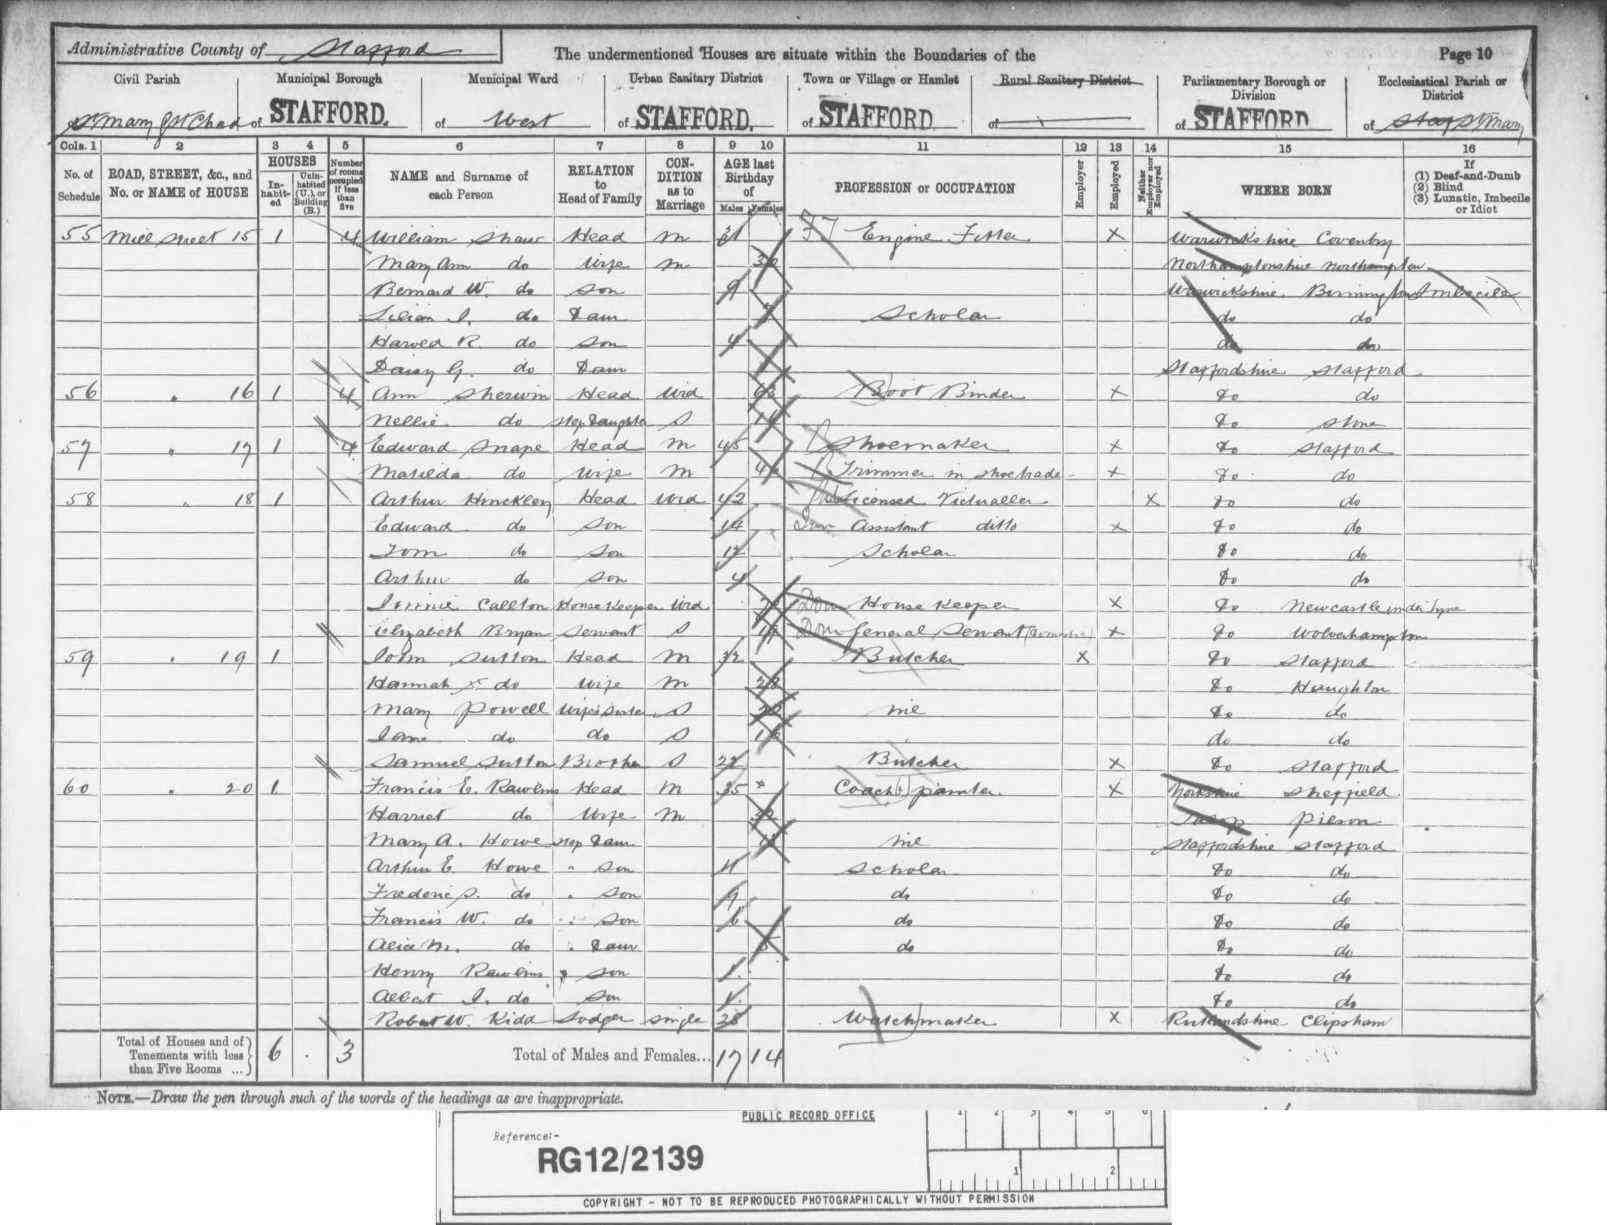 Administrative County of Stafford The undermentioned Houses are situate within the Boundaries of the Page 10
Civil Parish Municipal Borough Municipal Ward Urban Sanitary District Town or Village or Hamlet Rural Sanitary District Parliamentary Borough or Division Ecclesiastical Parish or District
St Mary & St Chad of STAFFORD. of West of STAFFORD. of STAFFORD of of STAFFORD of St Mary
Cols. 1 2 3 4 5 6 7 8 9 10 11 12 13 14 15 16
No. of Schedule ROAD, STREET, &c., and No. or NAME of HOUSE HOUSES Inhabited Uninhabited (U.), or Building (B.) Number of rooms occupied if less than five NAME and Surname of each Person RELATION to Head of Family CONDITION as to Marriage AGE last Birthday of Males Females PROFESSION or OCCUPATION Employer Employed Neither Employer nor Employed WHERE BORN If (1) Deaf-and-Dumb (2) Blind (3) Lunatic, Imbecile or Idiot
55 Mill Street 15 1 4 William Shaw Head M 31 Engine Fitter X Warwickshire Coventry
Mary Ann do Wife M Northamptonshire Northampton
Bernard W. do Son 9 Warwickshire Birmingham Imbecile
Lilian J. do Daur Scholar do do
Harold R. do Son 4 do do
Daisy G. do Daur Staffordshire Stafford
56 " 16 1 4 Ann Sherwin Head Wid Boot Binder X Do do
Nellie do Step Daughter S Do Stone
57 " 17 1 4 Edward Snape Head M 45 Shoemaker X Do Stafford
Matilda do Wife M Trimmer in shoe trade X Do do
58 " 18 1 Arthur Hinckley Head Wid 42 Licensed Victualler X Do do
Edward do Son 14 Assistant ditto X Do do
Tom do Son 12 Scholar Do do
Arthur do Son 4 Do do
Callton House Keeper Wid Dom House Keeper X Do Newcastle under Lyne
Elizabeth Bryan Servant S Dom General Servant (Domestic) X Do Wolverhampton
59 " 19 1 John Sutton Head M 32 Butcher X Do Stafford
Hannah do Wife M Do Haughton
Mary Powell Wife's Sister S nil Do do
do do S do do
Samuel Sutton Brother S 22 Butcher X Do Stafford
60 " 20 1 Francis E. Rawlins Head M 35 Coach painter X Yorkshire Sheffield
Harriet do Wife M
Mary A. Howe Step Daur nil Staffordshire Stafford
Arthur E Howe " Son 11 Scholar Do do
Frederic S. do " Son 9 do Do do
Francis W. do " Son 6 do Do do
Alice M. do " Daur do Do do
Henry Rawlins " Son 1 Do do
Albert J. do Son 1 Do do
Robert W. Kidd Lodger Single 28 Watchmaker X Rutlandshire Clipsham
Total of Houses and of Tenements with less than Five Rooms ... 6 . 3 Total of Males and Females... 17 14
NOTE.—Draw the pen through such of the words of the headings as are inappropriate.
PUBLIC RECORD OFFICE
1 2 3 4 5 6
Reference:-
RG12/2139
1 2
COPYRIGHT - NOT TO BE REPRODUCED PHOTOGRAPHICALLY WITHOUT PERMISSION